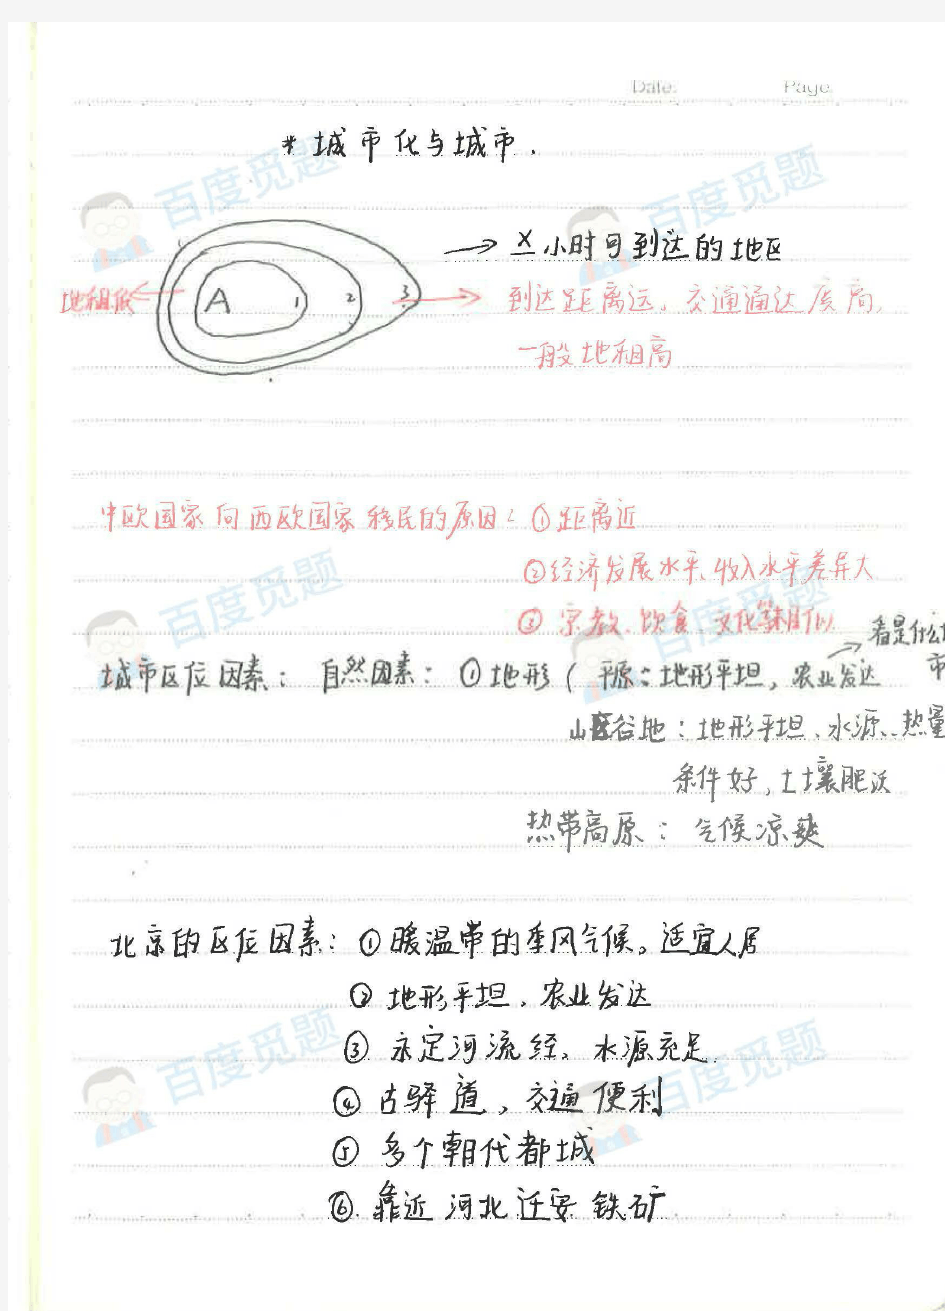 Date: Page
* 城市化与城市.
→ X小时可到达的地区
地租低 A 1 2 3 到达距离远, 交通通达度高,
一般地租高
中欧国家向西欧国家移民的原因: ①距离近
②经济发展水平、收入水平差异大
③宗教、饮食、文化等相似
看是什么
市
城市区位因素: 自然因素: ①地形 ( 平原: 地形平坦, 农业发达
山区谷地: 地形平坦、水源、热量
条件好, 土壤肥沃
热带高原: 气候凉爽
北京的区位因素: ①暖温带的季风气候。适宜人居
② 地形平坦, 农业发达
③ 永定河流经, 水源充足
④ 古驿道, 交通便利
⑤ 多个朝代都城
⑥. 靠近河北迁安铁矿
百度觅题
百度觅题
百度觅题
百度觅题
百度觅题
百度觅题